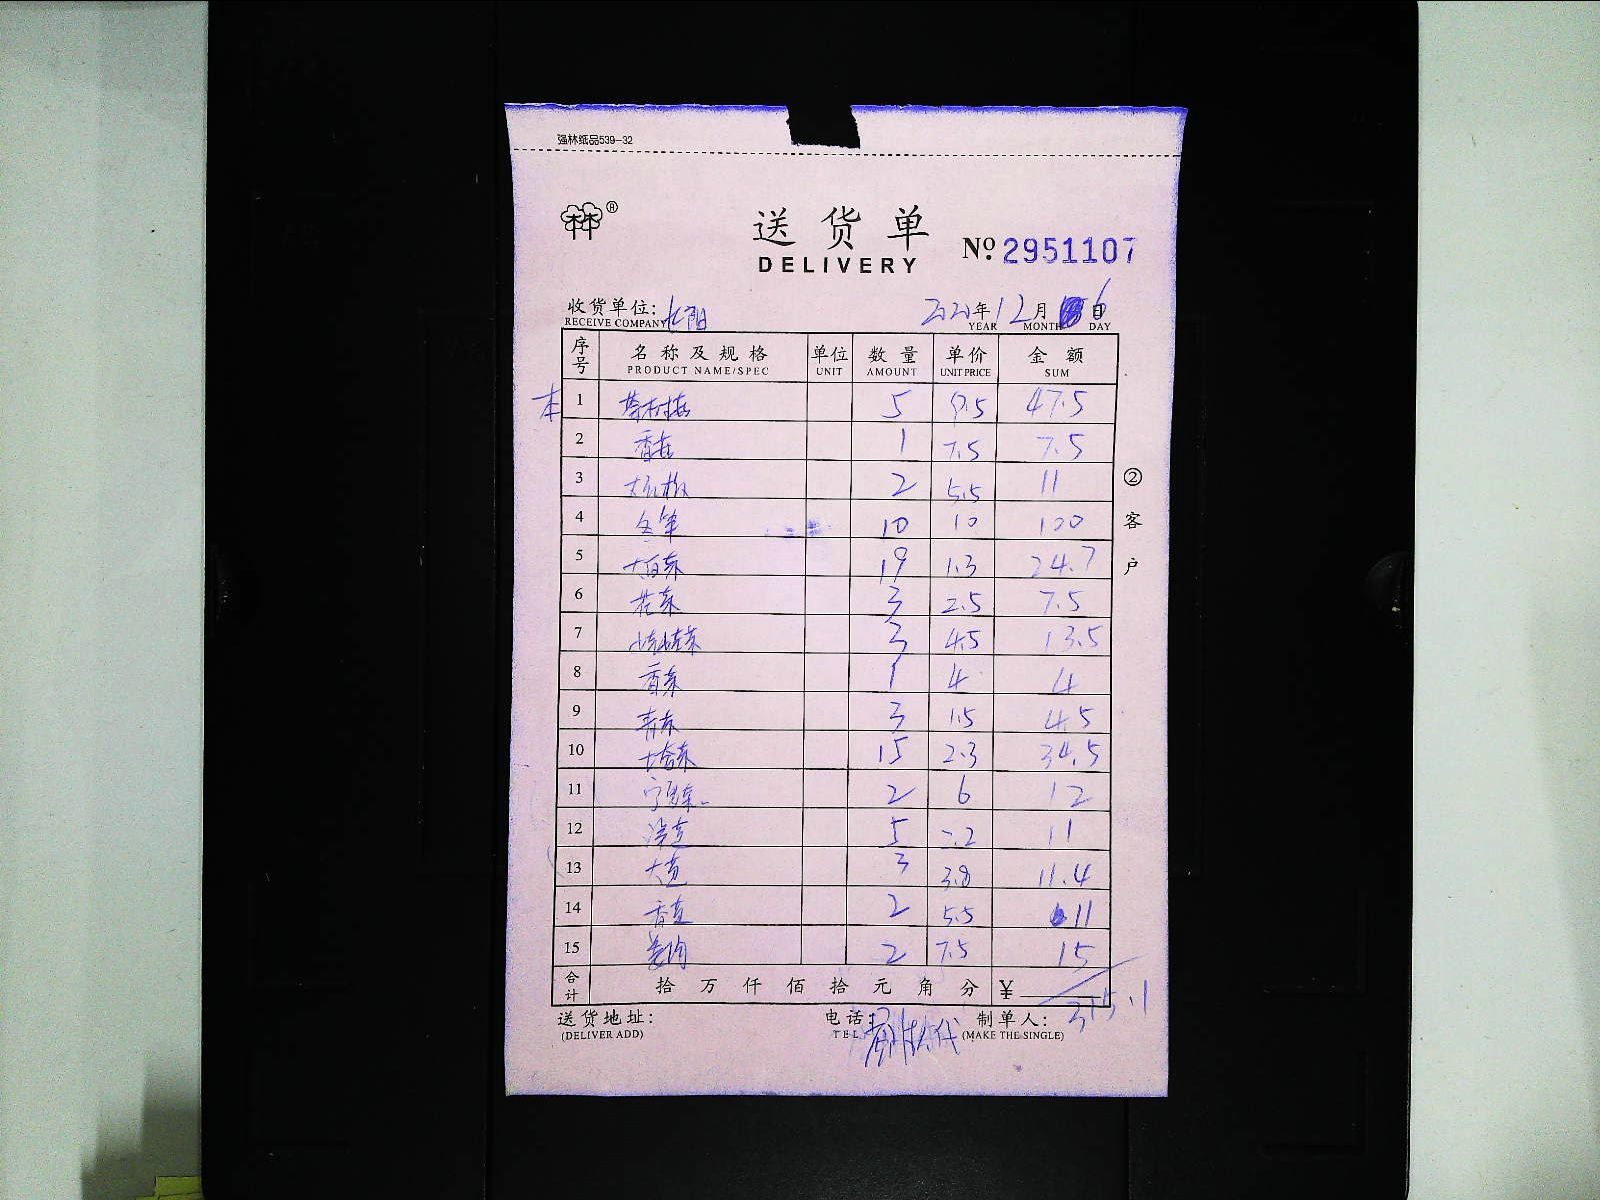 强林纸品539-32
林®
送货单
DELIVERY
№ 2951107
收货单位:
RECEIVE COMPANY
2020年12月6日
YEAR MONTH DAY
序号 名称及规格 单位 数量 单价 金额
PRODUCT NAME/SPEC UNIT AMOUNT UNIT PRICE SUM
本 1 茶树菇 5 9.5 47.5
2 香菇 1 7.5 7.5
3 2 5.5 11
4 冬笋 10 10 100
5 大白菜 19 1.3 24.7
6 花菜 3 2.5 7.5
7 3 4.5 13.5
8 香菜 1 4 4
9 青菜 3 1.5 4.5
10 15 2.3 34.5
11 2 6 12
12 5 2.2 11
13 大葱 3 3.8 11.4
14 香葱 2 5.5 11
15 2 7.5 15
合计 拾万仟佰拾元角分 ¥ 315.1
②客户
送货地址: 电话: 制单人:
(DELIVER ADD) TEL (MAKE THE SINGLE)